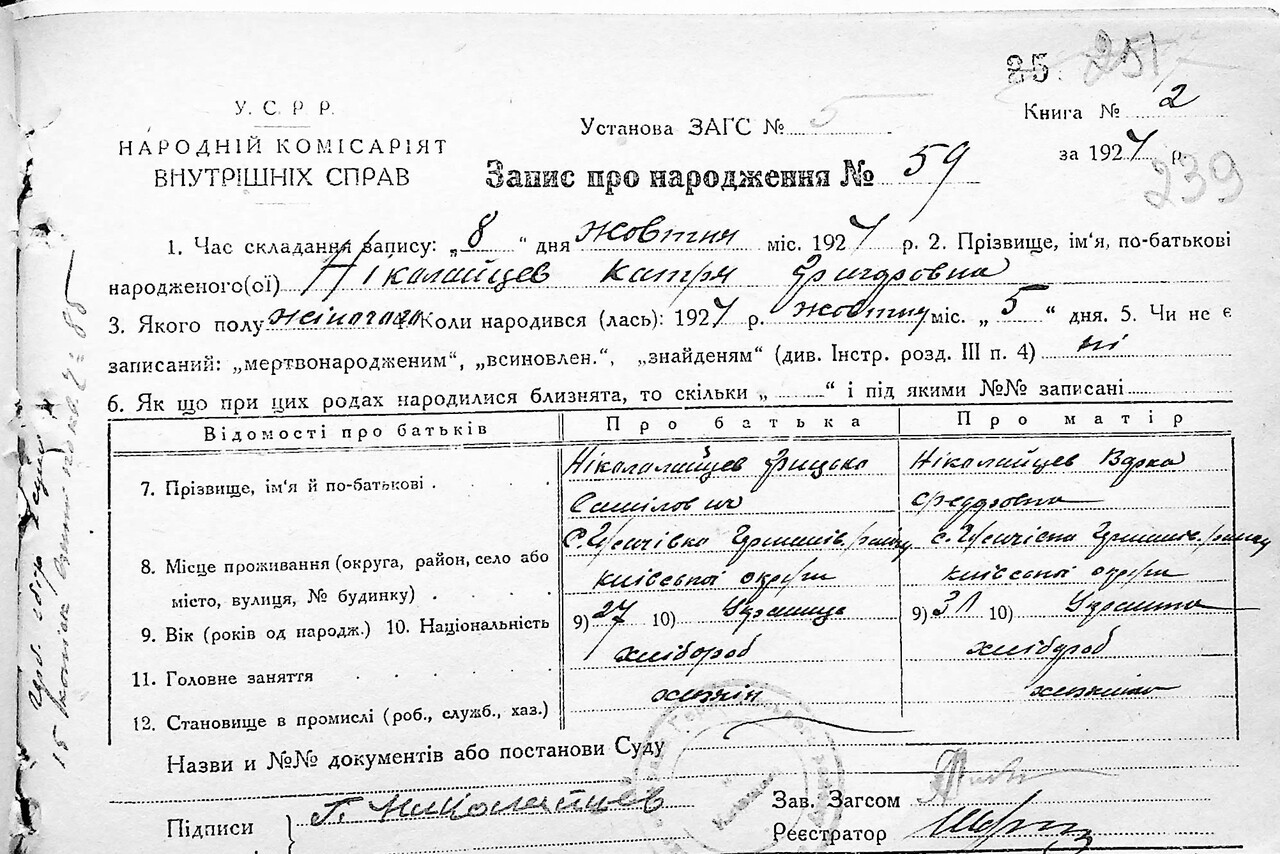 25 251
У. С. Р. Р.
НАРОДНІЙ КОМІСАРІЯТ
ВНУТРІШНІХ СПРАВ
Установа ЗАГС № 5
Книга № 2
за 1927 р.
Запис про народження № 59
239
1. Час складання запису: „8“ дня жовтня міс. 1927 р. 2. Прізвище, ім'я, по-батькові
народженого(ої) Ніколайцев Катря Григоровна
3. Якого полу жіночого 4. Коли народився (лась): 1927 р. жовтня міс. „5“ дня. 5. Чи не є
записаний: „мертвонародженим“, „всиновлен.“, „знайденям“ (див. Інстр. розд. III п. 4) ні
6. Як що при цих родах народилися близнята, то скільки „ “ і під якими №№ записані
Відомості про батьків Про батька Про матір
7. Прізвище, ім'я й по-батькові
Ніколалайцев Грицько
Самілович
Ніколайцев Варка
Федоровна
8. Місце проживання (округа, район, село або
місто, вулиця, № будинку)
київської округи
київської округи
9. Вік (років од народж.) 10. Національність
9) 27 10) Українець
9) 31 10) Українка
11. Головне заняття
хлібороб
хлібороб
12. Становище в промислі (роб., служб., хаз.)
хазяїн
Назви и №№ документів або постанови Суду
Підписи
Г. Николайцев
Зав. Загсом
Реєстратор